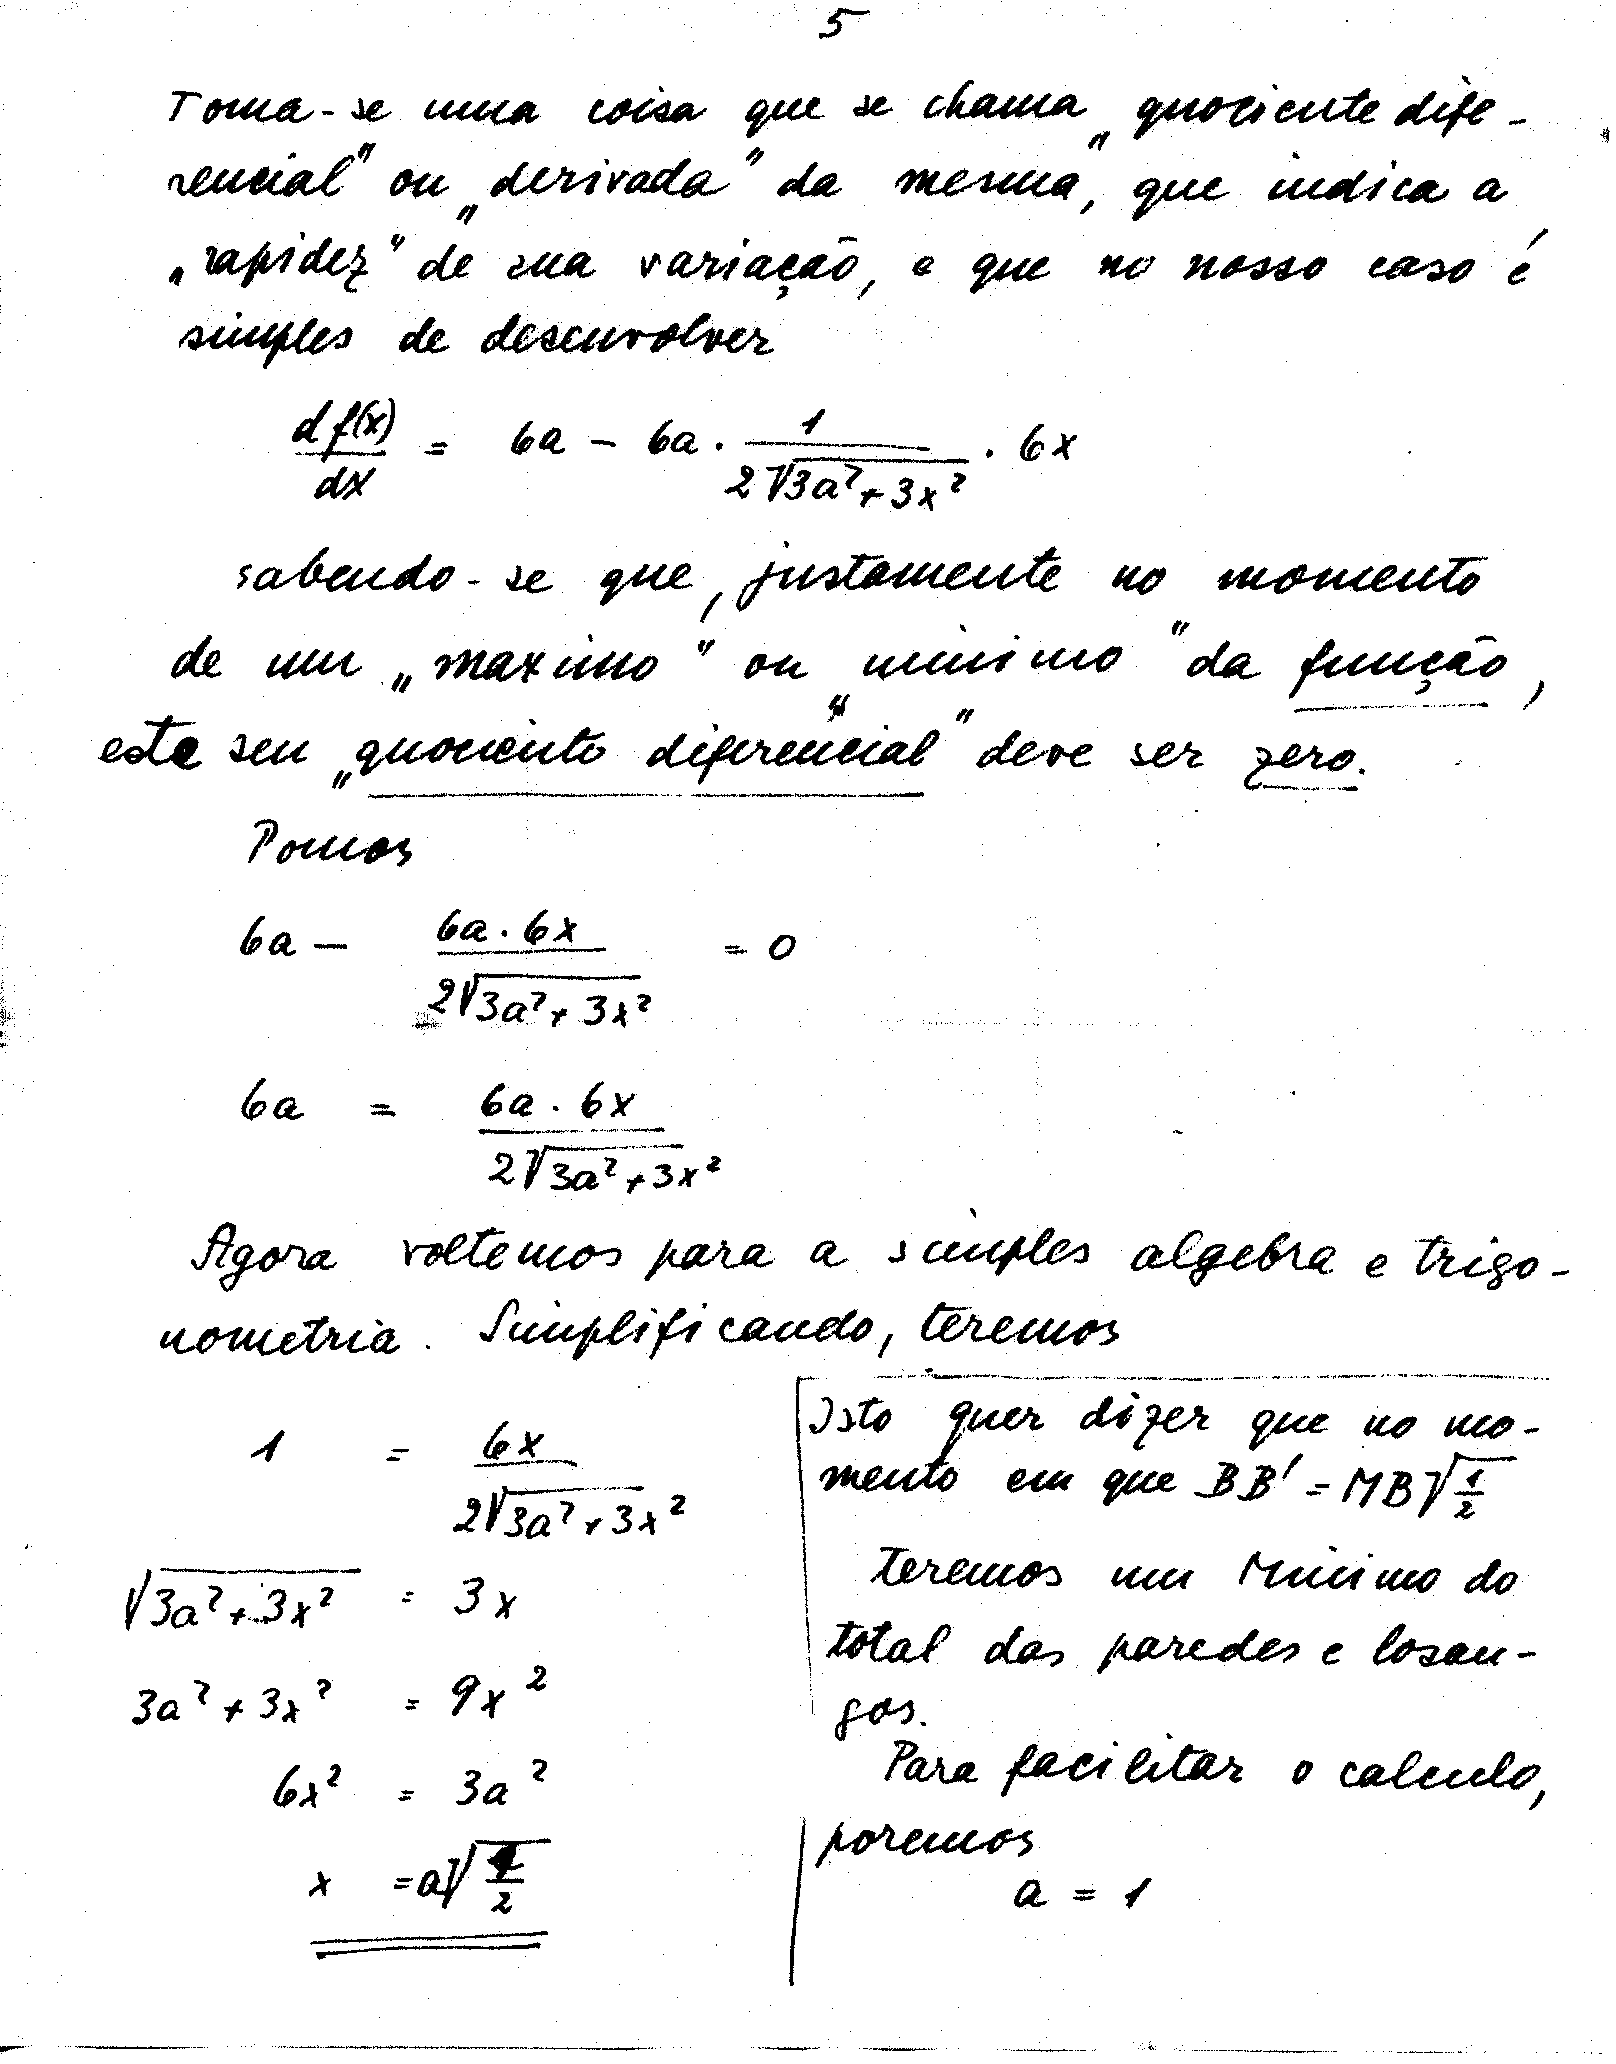 5
Toma-se uma coisa que se chama „quociente dife-
rencial" ou „derivada" da mesma, que indica a
„rapidez" de sua variação, e que no nosso caso é
simples de desenvolver
df(x)/dx = 6a - 6a · 1/(2√(3a²+3x²)) · 6x
sabendo-se que, justamente no momento
de um „maximo" ou „minimo" da função,
este seu „quociente diferencial" deve ser zero.
Pomos
6a - (6a·6x)/(2√(3a²+3x²)) = 0
6a = (6a·6x)/(2√(3a²+3x²))
Agora voltemos para a simples algebra e trigo-
nometria. Simplificando, teremos
1 = 6x/(2√(3a²+3x²))
√(3a²+3x²) = 3x
3a²+3x² = 9x²
6x² = 3a²
x = a√(1/2)
Isto quer dizer que no mo-
mento em que BB' = MB√(1/2)
teremos um Minimo do
total das paredes e losan-
gos.
Para facilitar o calculo,
poremos
a = 1